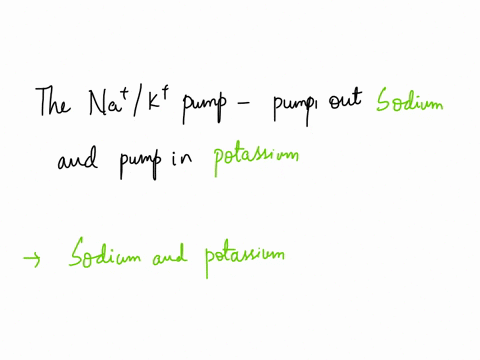 The Na⁺/K⁺ pump - pump, out Sodium
and pump in potassium
→ Sodium and potassium